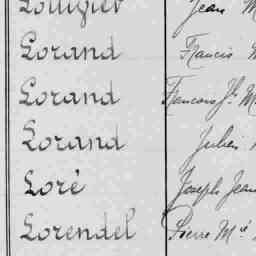 Jean M
Lorand Francis M
Lorand Francois Jh M
Lorand Julien
Loré Joseph Jean
Lorendel Pierre Mie